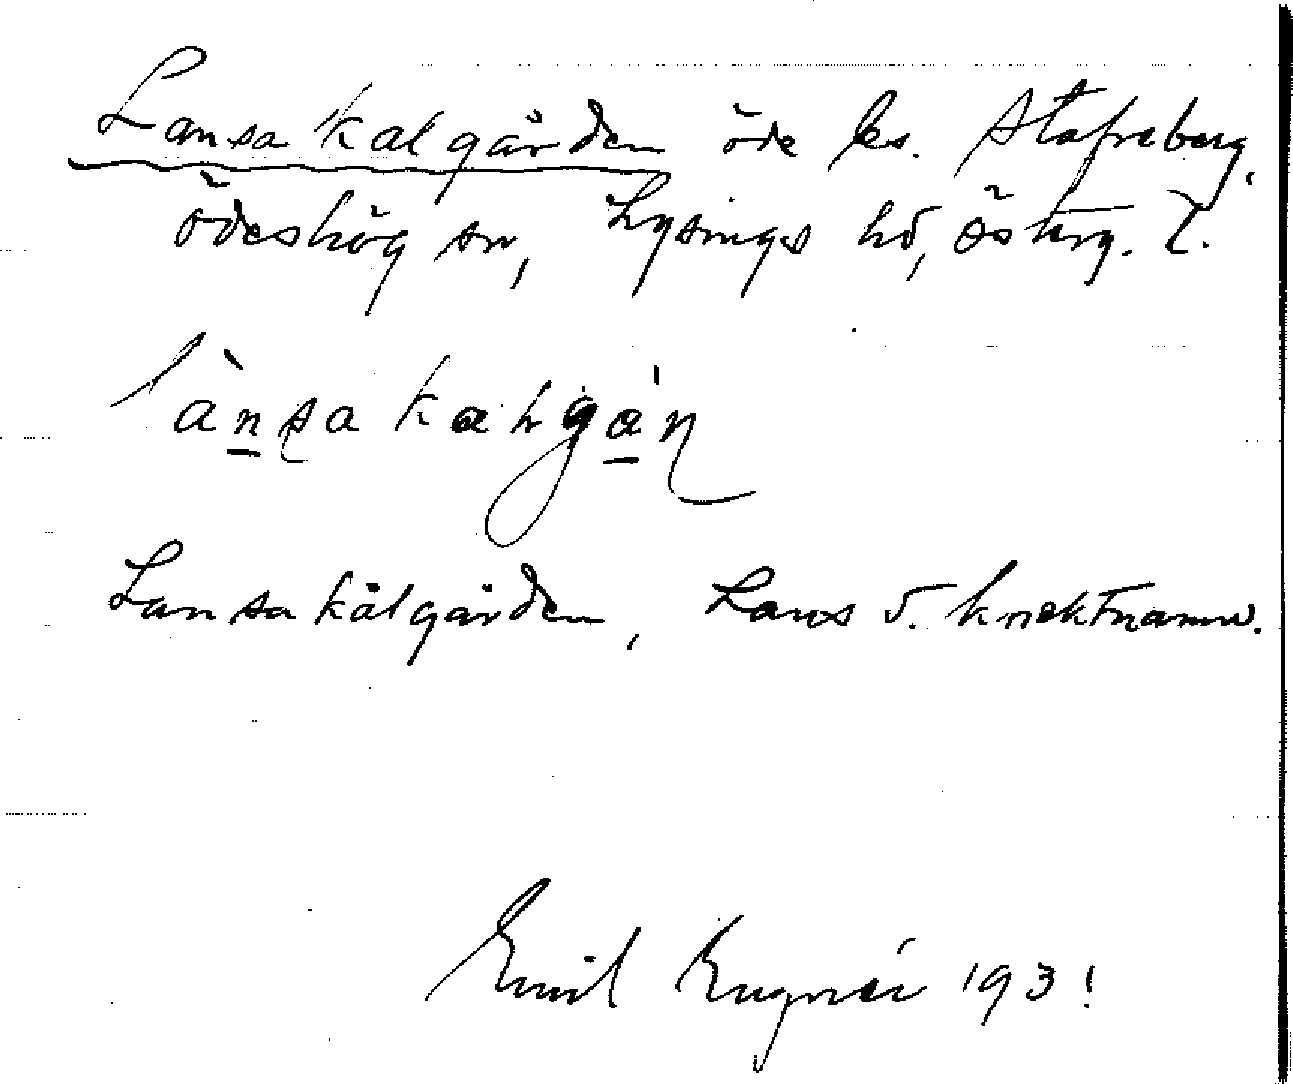 Lansa kalgården öde ks. Stafreberg,
Ödeshög sn, Lysings hd, Österg. l.
lànsa kahgán
Lansakålgården, Lans v. knektnamn.
Emil 1931